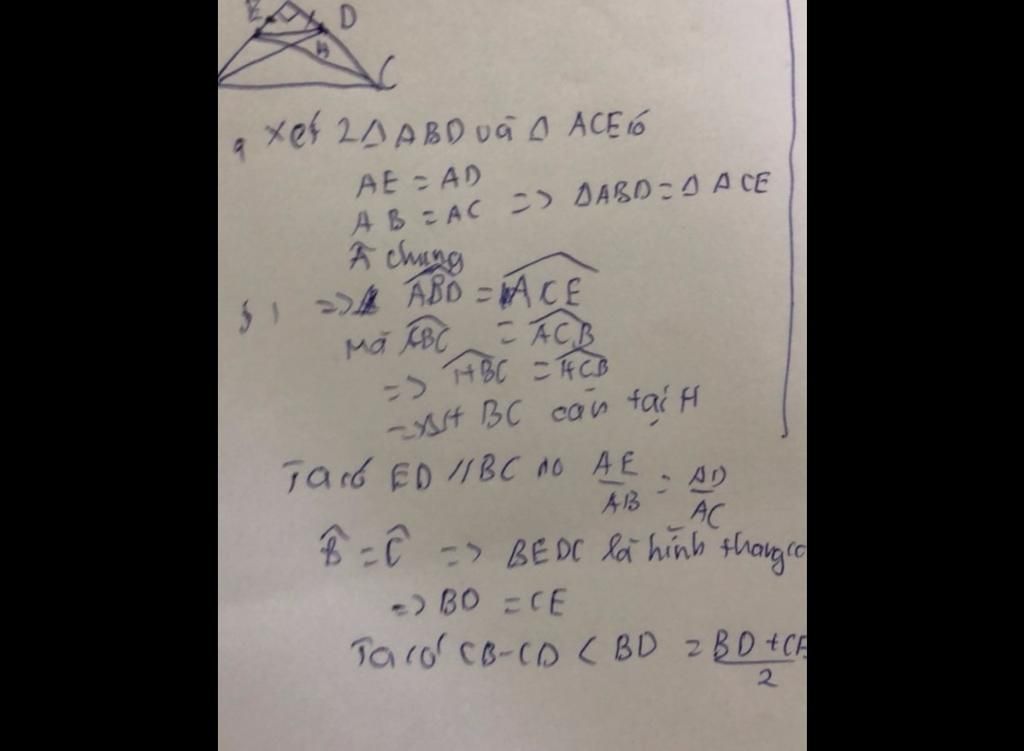 E D
H
C
a Xét 2 Δ ABD và Δ ACE có
AE = AD
AB = AC => ΔABD = Δ ACE
Â chung
b, => ABD = ACE
Mà ABC = ACB
=> HBC = HCB
=> ΔH BC cân tại H
Ta có ED // BC do AE/AB = AD/AC
B̂ = Ĉ => BEDC là hình thang
=> BD = CE
Ta có CB-CD < BD = BD + CE/2